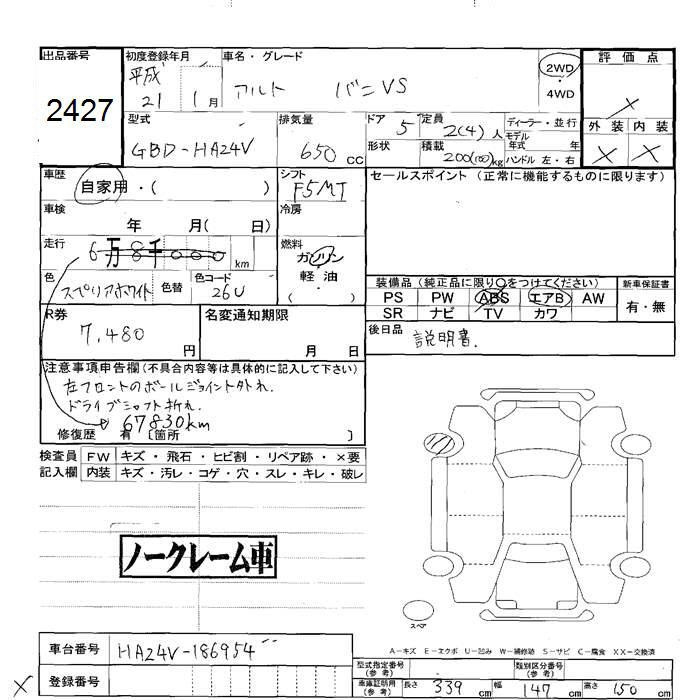 出品番号 初度登録年月 車名・グレード 評価点
2427 平成21 1月 アルト バンVS 2WD・4WD ×
型式 排気量 ドア 5 定員 2(4)人 ディーラー・並行 外装 内装
GBD-HA24V 650cc 形状 積載 200(100)kg モデル年式 年 ハンドル 左・右 × ×
車歴 シフト セールスポイント (正常に機能するものに限ります)
自家用・( ) F5MT
車検 冷房
年 月( 日)
走行 燃料
6万8千000km ガソリン
軽油
( )
色 色替 色コード
スペリアホワイト 26U
装備品(純正品に限り○をつけてください) 新車保証書
PS PW ABS エアB AW 有・無
SR ナビ TV カワ
R券 名変通知期限 後日品
7,480円 月 日 説明書.
注意事項申告欄(不具合内容等は具体的に記入して下さい)
左フロントのボールジョイント外れ.
ドライブシャフト折れ.
67830km
修復歴 有 〔箇所 〕
検査員 FW キズ・飛石・ヒビ割・リペア跡・×要
記入欄 内装 キズ・汚レ・コゲ・穴・スレ・キレ・破レ
ノークレーム車
スペア
A－キズ E－エクボ U－凹み W－補修跡 S－サビ C－腐食 XX－交換済
車台番号 HA24V-186954
登録番号
×
型式指定番号(参考) 類別区分番号(参考)
車庫証明用(参考) 長さ 339cm 幅 147cm 高さ 150cm